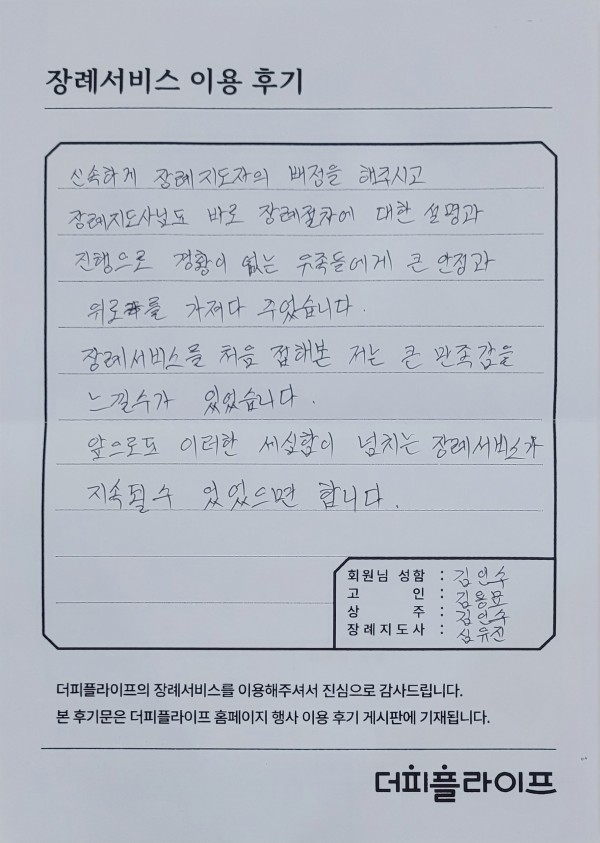 장례서비스 이용 후기
신속하게 장례지도자의 배정을 해주시고
장례지도사님도 바로 장례절차에 대한 설명과
진행으로 경황이 없는 유족들에게 큰 안정과
위로를 가져다 주었습니다.
장례서비스를 처음 접해본 저는 큰 만족감을
느낄수가 있었습니다.
앞으로도 이러한 세심함이 넘치는 장례서비스가
지속될수 있었으면 합니다.
회원님 성함 : 김인수
고 인 : 김용묘
상 주 : 김인수
장례지도사 : 심유진
더피플라이프의 장례서비스를 이용해주셔서 진심으로 감사드립니다.
본 후기문은 더피플라이프 홈페이지 행사 이용 후기 게시판에 기재됩니다.
더피플라이프